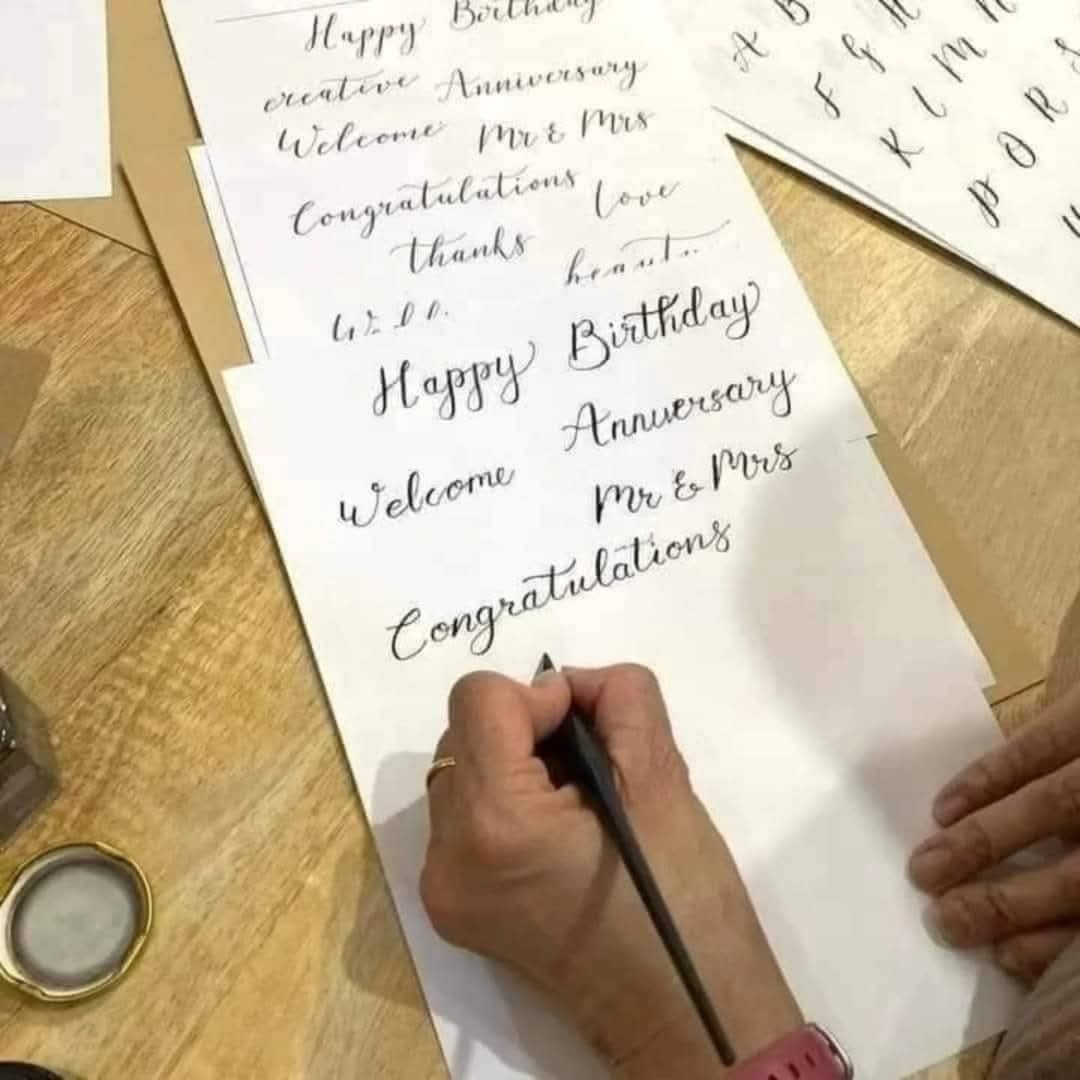 Happy Birthday
creative Anniversary
Welcome Mr & Mrs
Congratulations love
thanks
Happy Birthday
Anniversary
Welcome Mr & Mrs
Congratulations
A B
F G H
K L M N
P O R S